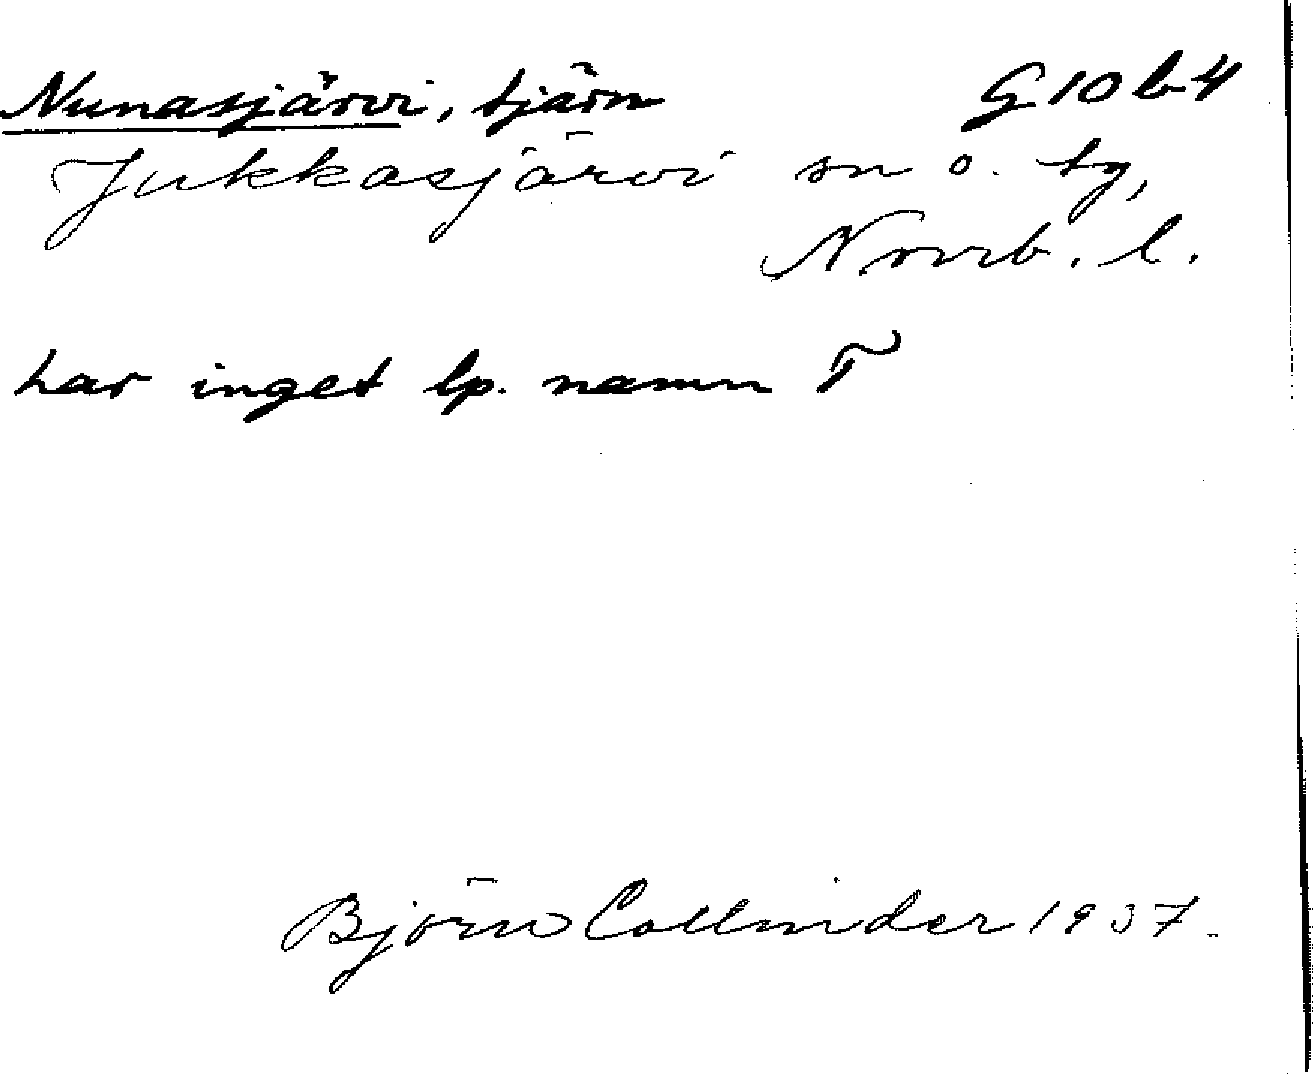 Nunasjärvi, tjärn G 10 b 4
Jukkasjärvi sn o. tg,
Norrb. l.
har inget lp. namn T
Björn Collinder 1937.